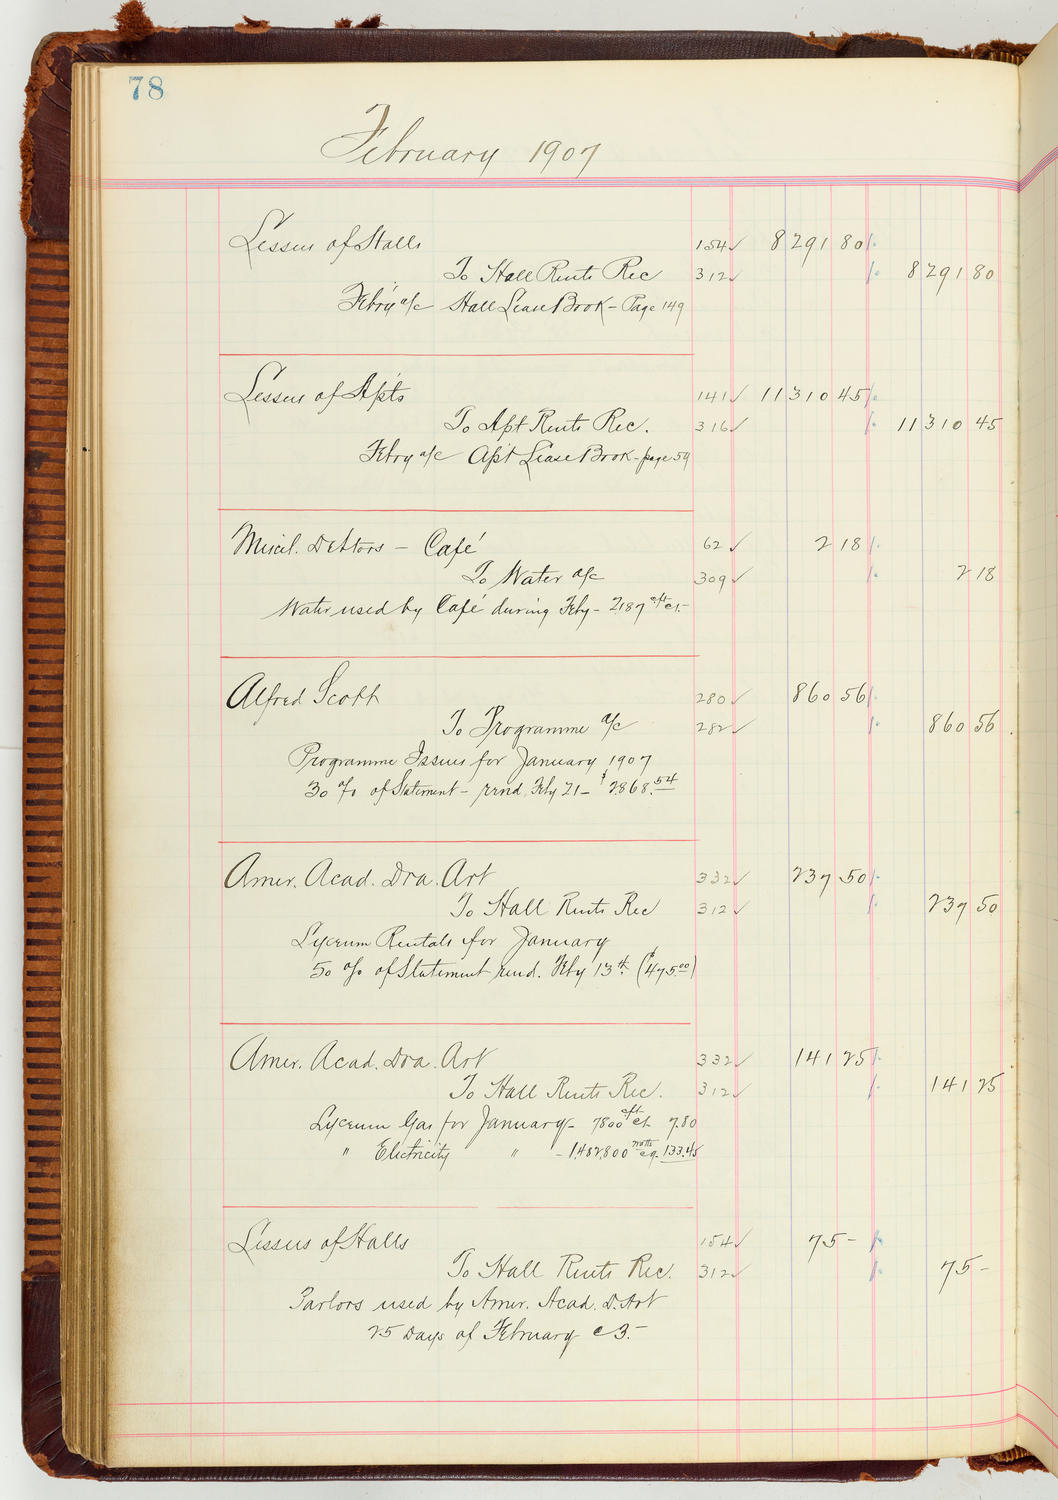 78
February 1907
Lessees of Halls 154 ✓ 8291 80
To Hall Rents Rec 312 ✓ 8291 80
Feb'y a/c Hall Lease Book - Page 149
Lessees of Ap'ts 141 ✓ 11310 45
To Apt Rents Rec. 316 ✓ 11310 45
Feby a/c Ap't Lease Book - page 59
Miscl. Debtors - Café 62 ✓ 2 18
To Water a/c 309 ✓ 2 18
Water used by Café during Feby - 2187 cft
Alfred Scott 280 ✓ 860 56
To Programme a/c 282 ✓ 860 56
Programme Issues for January 1907
30 % of Statement - rend. Feby 21 - $2868.54
Amer. Acad. Dra. Art 332 ✓ 237 50
To Hall Rents Rec 312 ✓ 237 50
Lyceum Rentals for January
50 % of Statement rend. Feby 13th. ($475.00)
Amer. Acad. Dra. Art 332 ✓ 141 25
To Hall Rents Rec. 312 ✓ 141 25
Lyceum Gas for January - 7800 cft 7.80
" Electricity " - 1,482,800 watts 133.45
Lessees of Halls 154 ✓ 75 -
To Hall Rents Rec. 312 ✓ 75 -
Parlors used by Amer. Acad. D. Art
25 Days of February @ 3.-